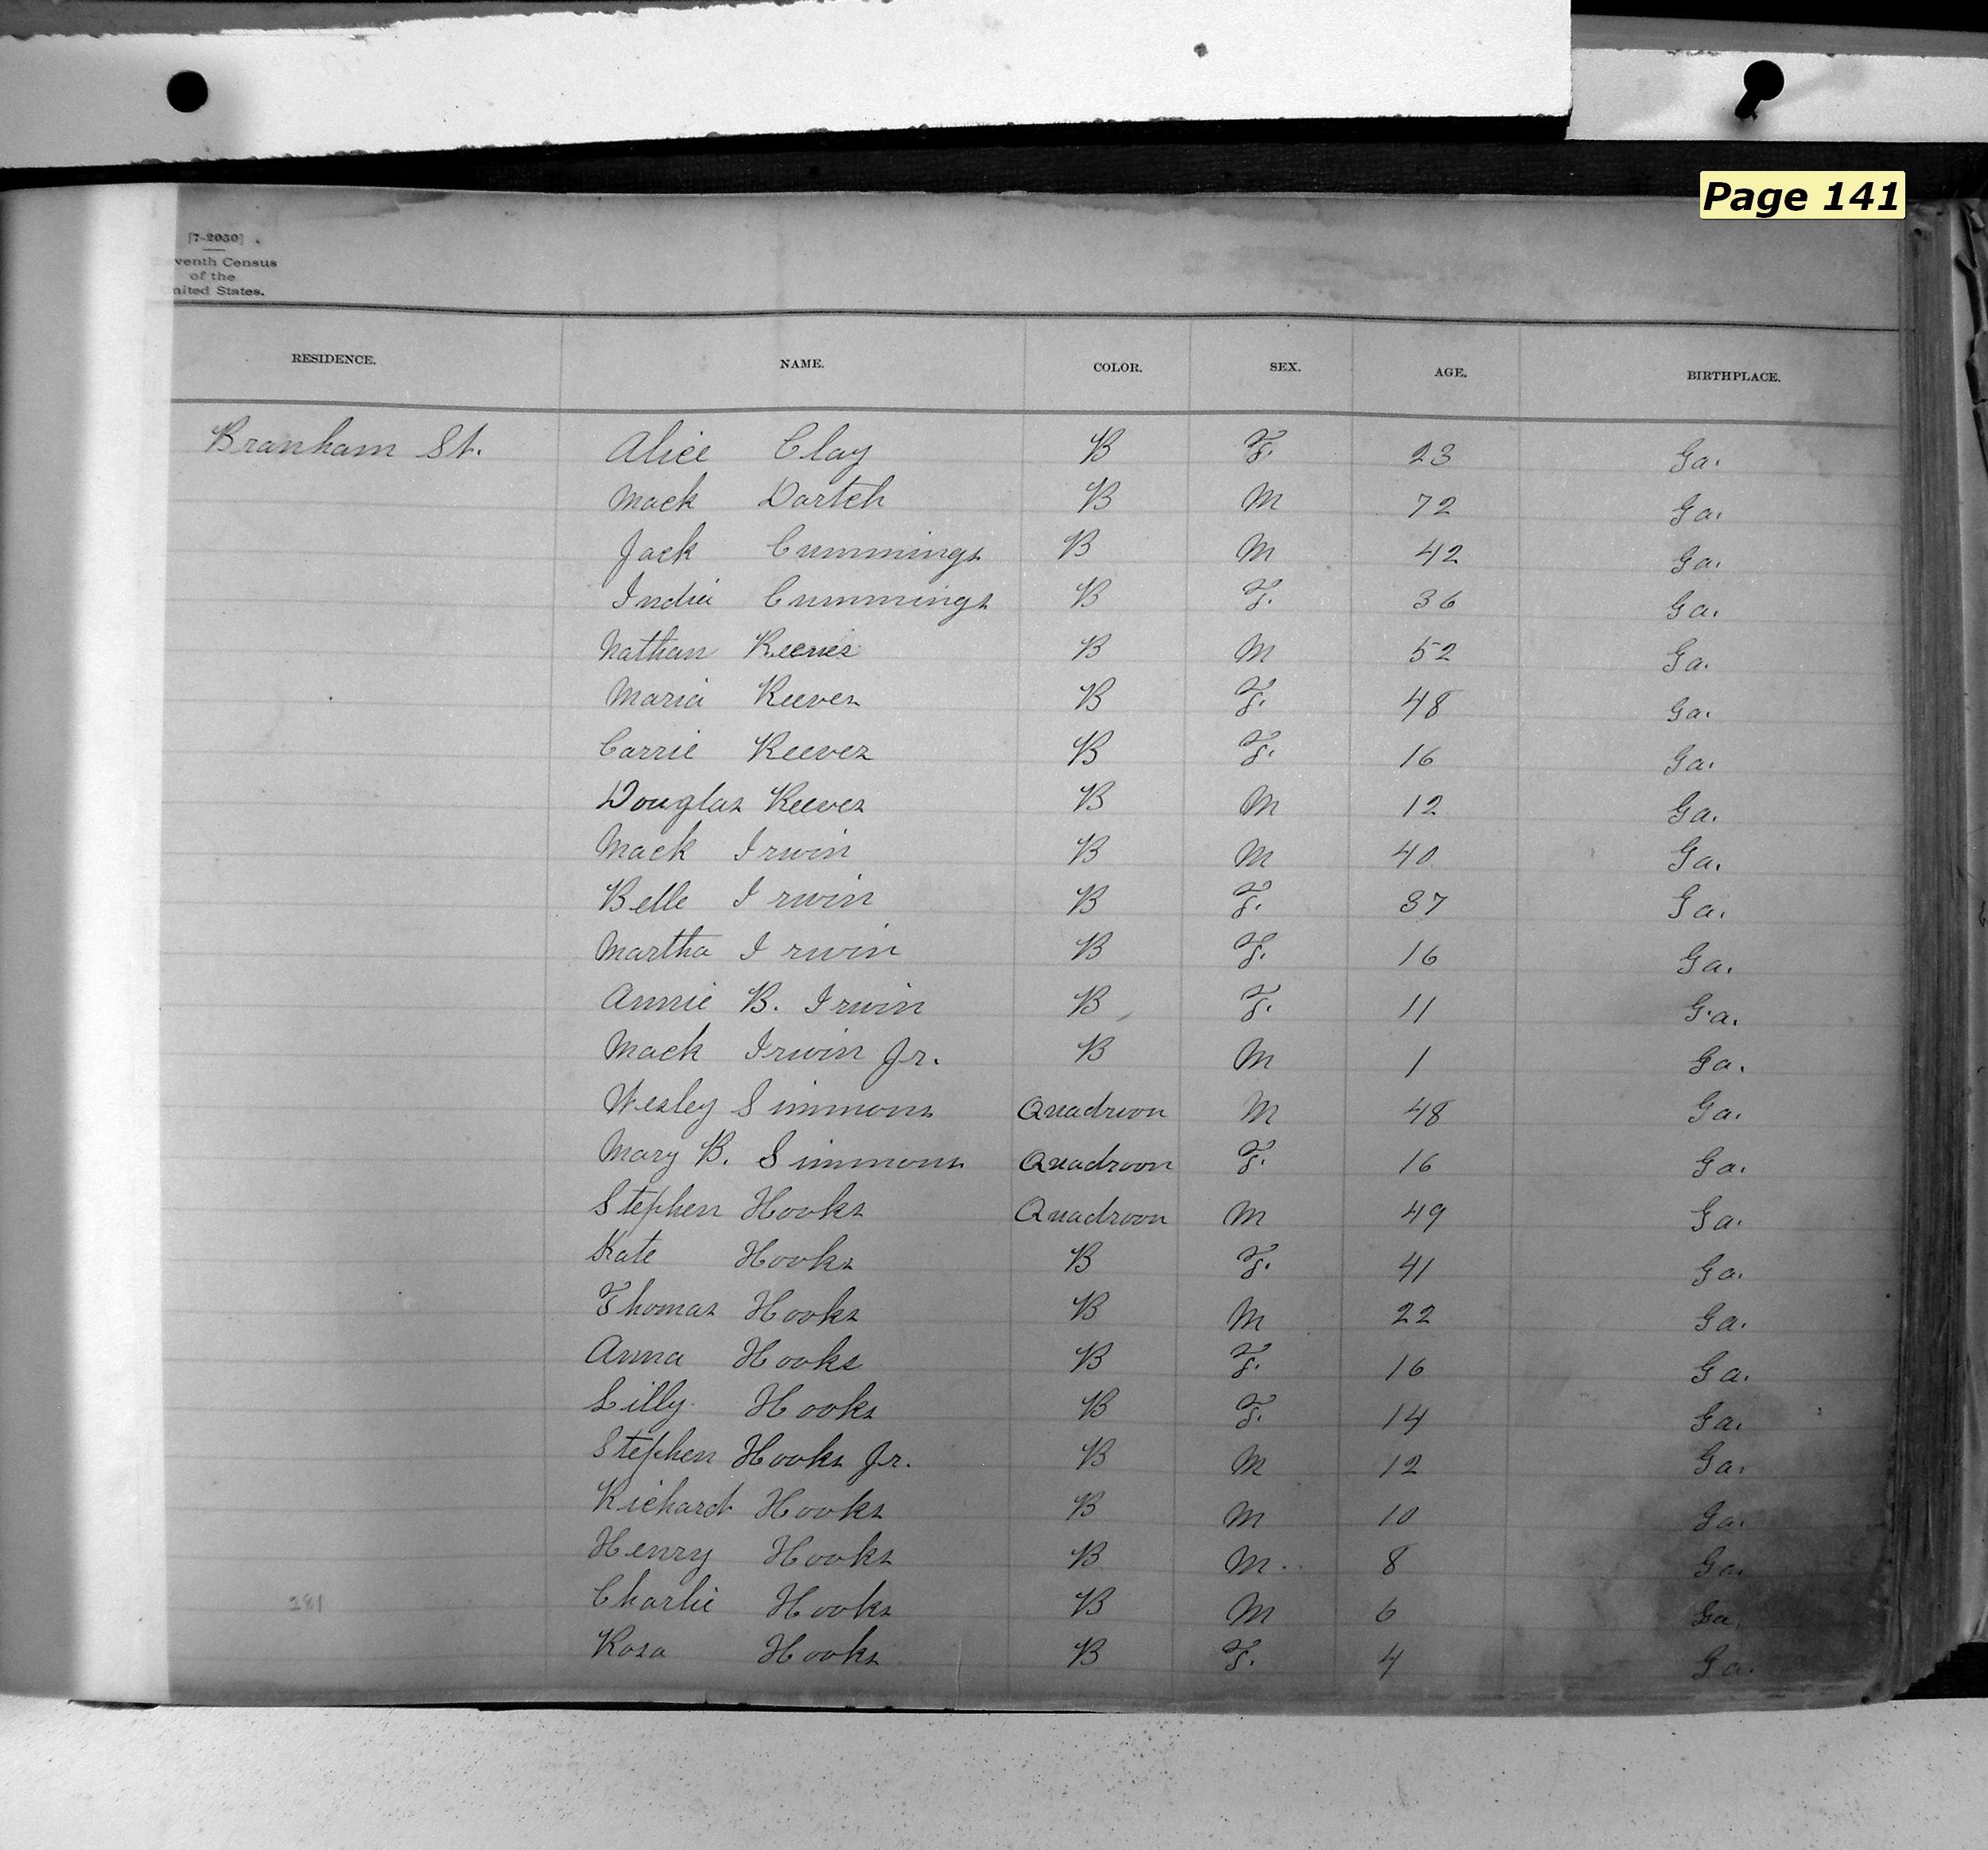 Page 141
[7-2050]
venth Census
of the
nited States.
RESIDENCE. NAME. COLOR. SEX. AGE. BIRTHPLACE.
Branham St. Alice Clay B F. 23 Ga.
Mack Dorteh B M 72 Ga.
Jack Cummings B M 42 Ga.
India Cummings B F. 36 Ga.
Nathan Reeves B M 52 Ga.
Maria Reeves B F. 48 Ga.
Carrie Reeves B F. 16 Ga.
Douglas Reeves B M 12 Ga.
Mack Irwin B M 40 Ga.
Belle Irwin B F. 37 Ga.
Martha Irwin B F. 16 Ga.
Annie B. Irwin B F. 11 Ga.
Mack Irwin Jr. B M 1 Ga.
Wesley Simmons Quadroon M 48 Ga.
Mary B. Simmons Quadroon F. 16 Ga.
Stephen Hooks Quadroon M 49 Ga.
Kate Hooks B F. 41 Ga.
Thomas Hooks B M 22 Ga.
Anna Hooks B F. 16 Ga.
Lilly Hooks B F. 14 Ga.
Stephen Hooks Jr. B M 12 Ga.
Richard Hooks B M 10 Ga.
Henry Hooks B M 8 Ga.
281 Charlie Hooks B M 6 Ga.
Rosa Hooks B F. 4 Ga.